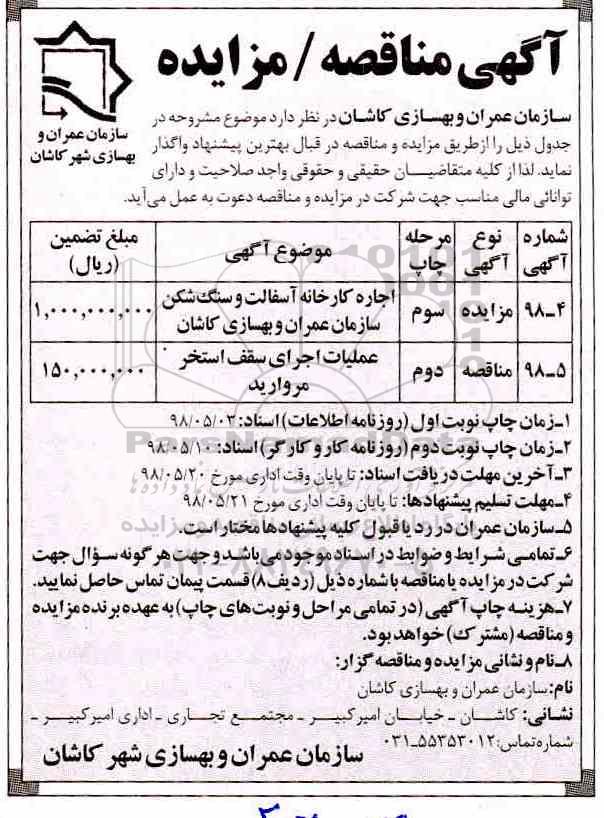 آگهی مناقصه / مزایده
سازمان عمران و
بهسازی شهر کاشان
سازمان عمران و بهسازی کاشان در نظر دارد موضوع مشروحه در
جدول ذیل را از طریق مزایده و مناقصه در قبال بهترین پیشنهاد واگذار
نماید. لذا از کلیه متقاضیان حقیقی و حقوقی واجد صلاحیت و دارای
توانائی مالی مناسب جهت شرکت در مزایده و مناقصه دعوت به عمل می‌آید.
شماره آگهی نوع آگهی مرحله چاپ موضوع آگهی مبلغ تضمین (ریال)
۴ـ۹۸ مزایده سوم اجاره کارخانه آسفالت و سنگ شکن سازمان عمران و بهسازی کاشان ۱,۰۰۰,۰۰۰,۰۰۰
۵ـ۹۸ مناقصه دوم عملیات اجرای سقف استخر مروارید ۱۵۰,۰۰۰,۰۰۰
۱ـ زمان چاپ نوبت اول (روزنامه اطلاعات) اسناد: ۹۸/۰۵/۰۳
۲ـ زمان چاپ نوبت دوم (روزنامه کار و کارگر) اسناد: ۹۸/۰۵/۱۰
۳ـ آخرین مهلت دریافت اسناد: تا پایان وقت اداری مورخ ۹۸/۰۵/۲۰
۴ـ مهلت تسلیم پیشنهادها: تا پایان وقت اداری مورخ ۹۸/۰۵/۲۱
۵ـ سازمان عمران در رد یا قبول کلیه پیشنهادها مختار است.
۶ـ تمامی شرایط و ضوابط در اسناد موجود می باشد و جهت هر گونه سؤال جهت
شرکت در مزایده یا مناقصه با شماره ذیل (ردیف ۸) قسمت پیمان تماس حاصل نمایید.
۷ـ هزینه چاپ آگهی (در تمامی مراحل و نوبت‌های چاپ) به عهده برنده مزایده
و مناقصه (مشترک) خواهد بود.
۸ـ نام و نشانی مزایده و مناقصه گزار:
نام: سازمان عمران و بهسازی کاشان
نشانی: کاشان ـ خیابان امیرکبیر ـ مجتمع تجاری ـ اداری امیرکبیر ـ
شماره تماس: ۵۵۳۵۳۰۱۲ـ۰۳۱
سازمان عمران و بهسازی شهر کاشان
ParsNamadData